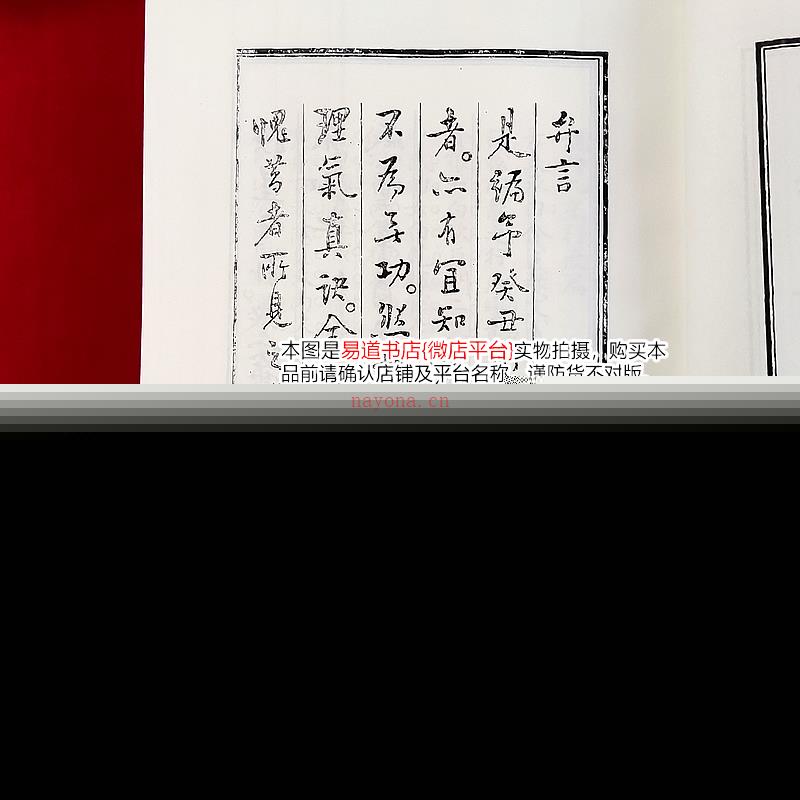 弁言
是編
癸丑
者。亦有宜知
不為無功。然
理氣真訣。全
愧著者所見
本图是易道书店{微店平台}实物拍摄，购买本
品前请确认店铺及平台名称，谨防货不对版
nayona.cn